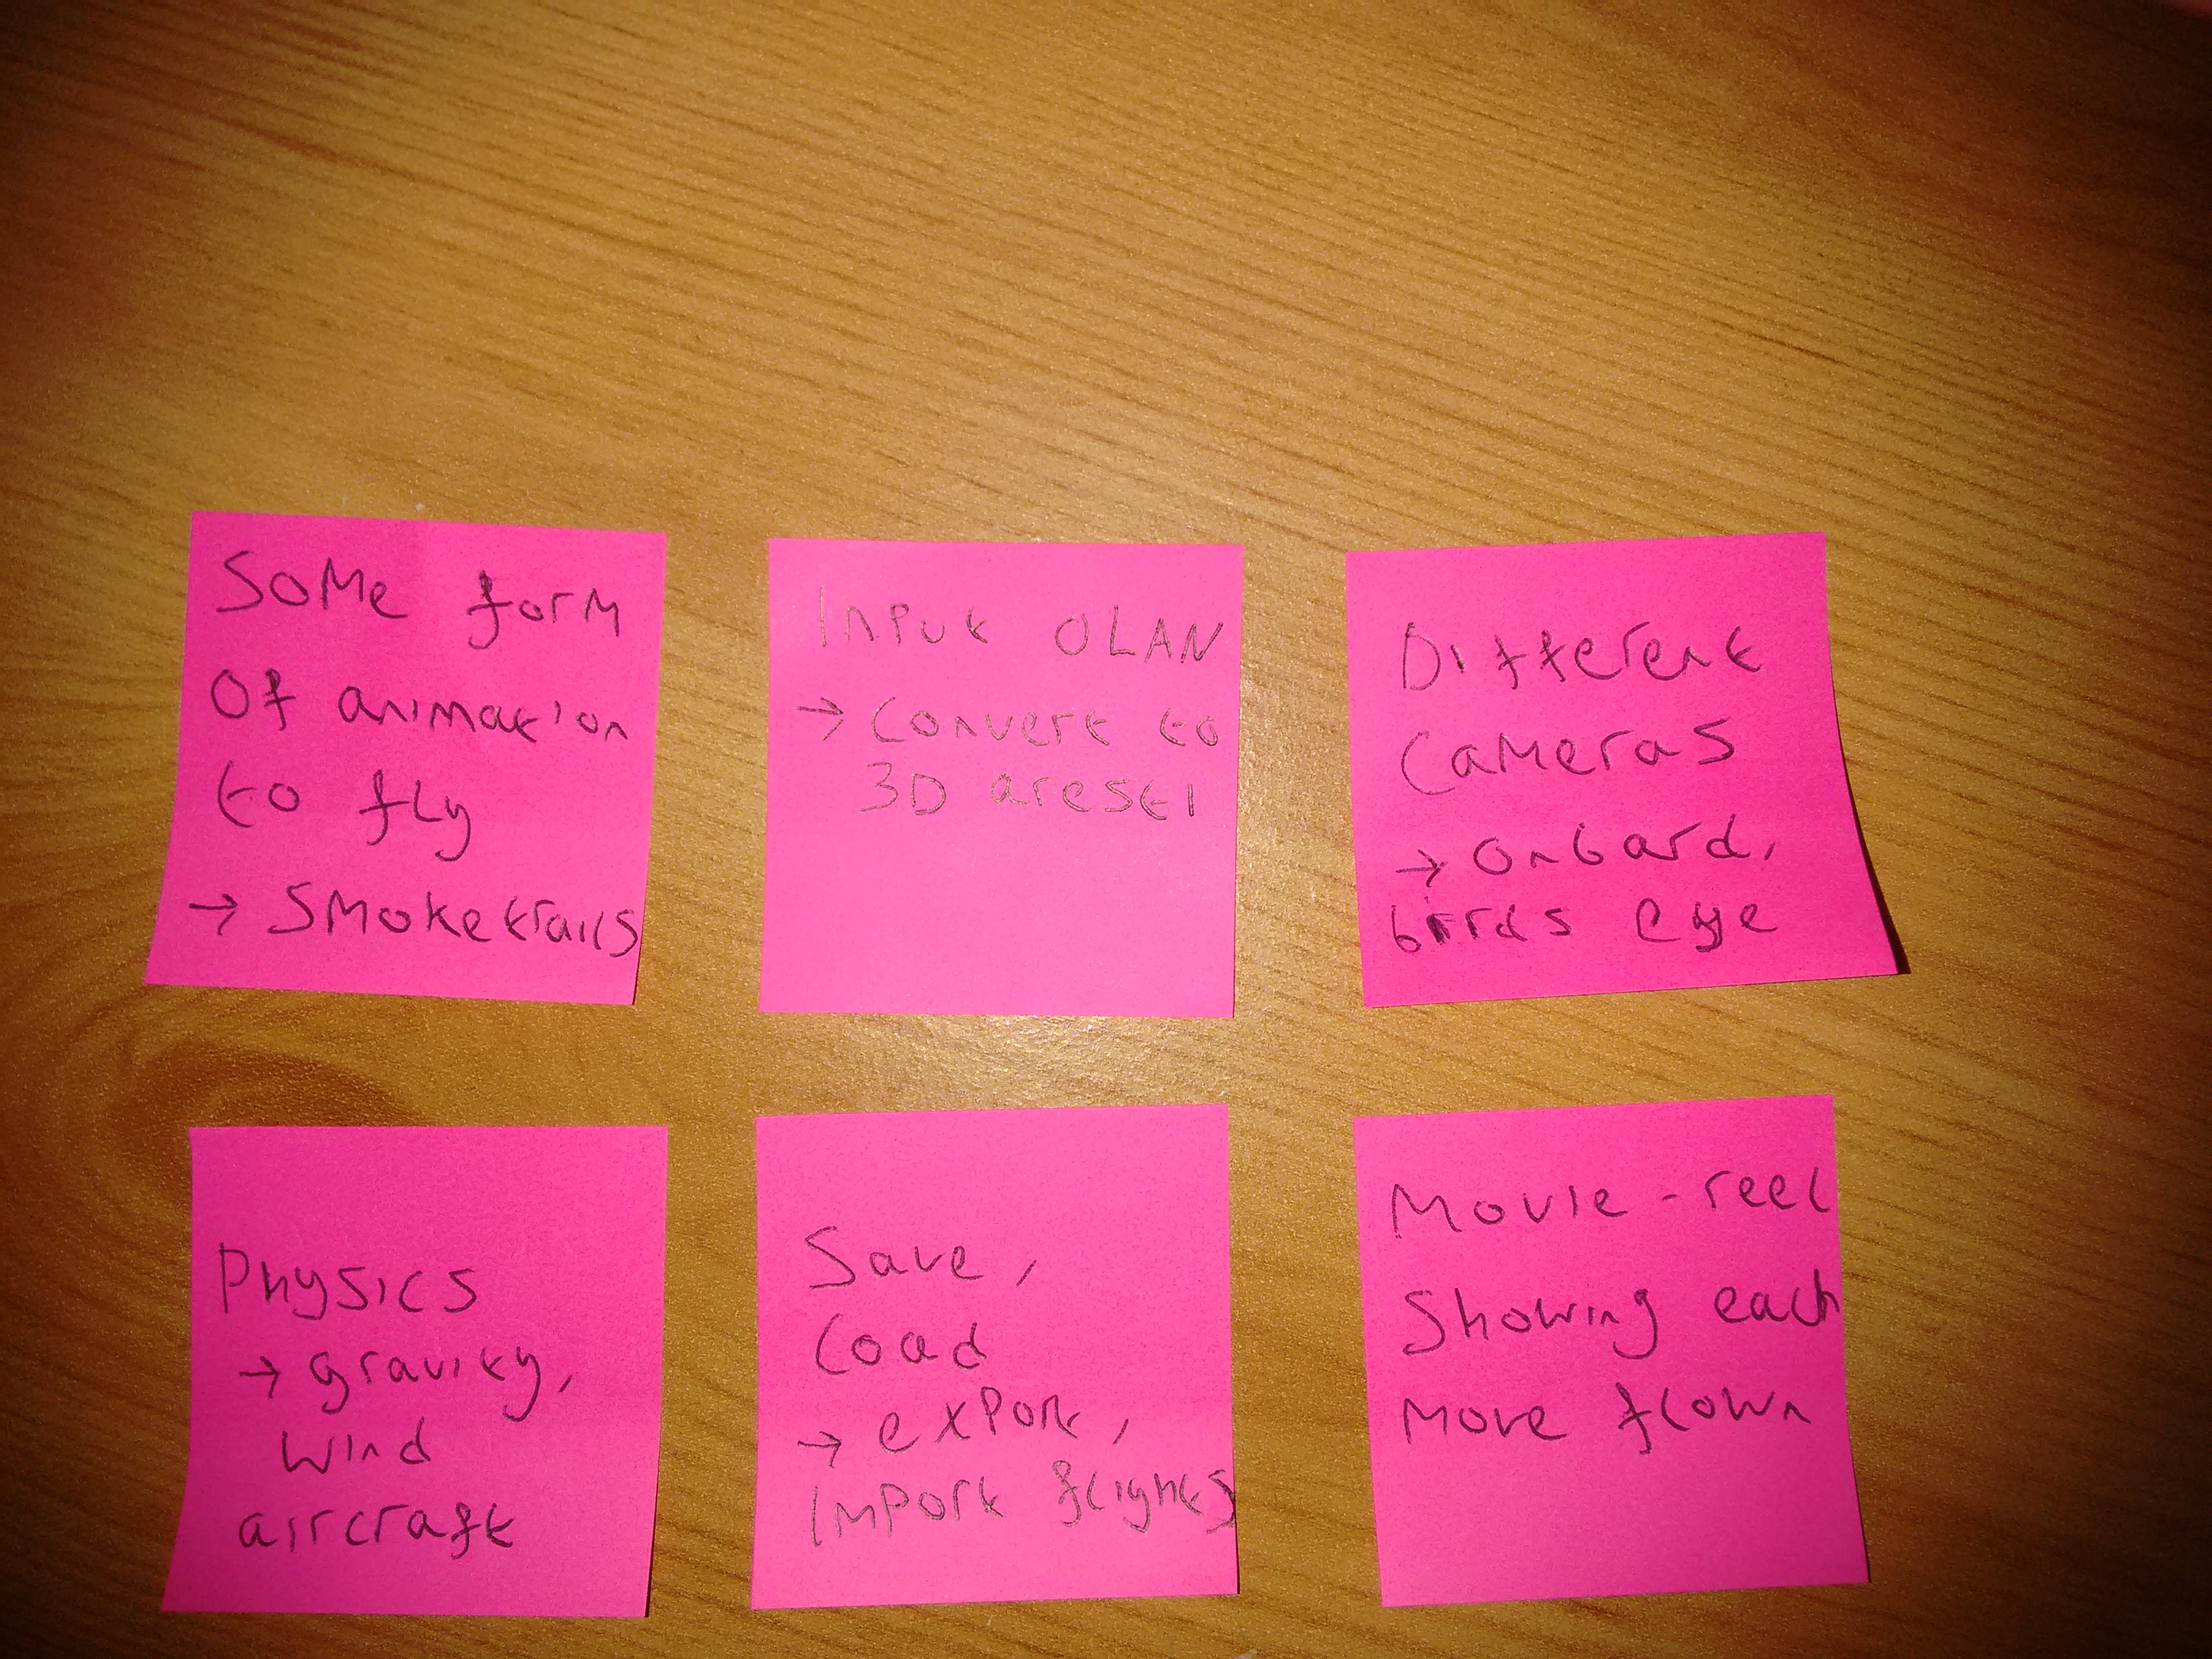 Some form
of animation
to fly
→ smoketrails
Input OLAN
→ convert to
3D aresti
Different
Cameras
→ Onbard,
birds eye
Physics
→ gravity,
wind
aircraft
Save,
load
→ export,
import flights
Movie-reel
Showing each
move flown